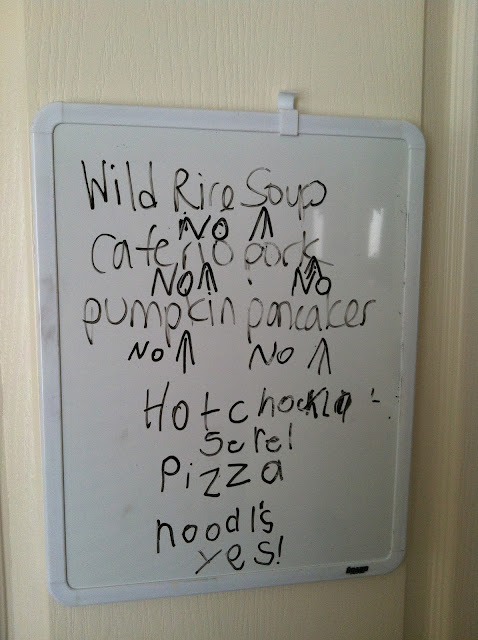 Wild Rice Soup
NO
Caferio pork
NO NO
pumpkin pancakes
NO NO
Hot chockla
Sere!
Pizza
noodl's
yes!